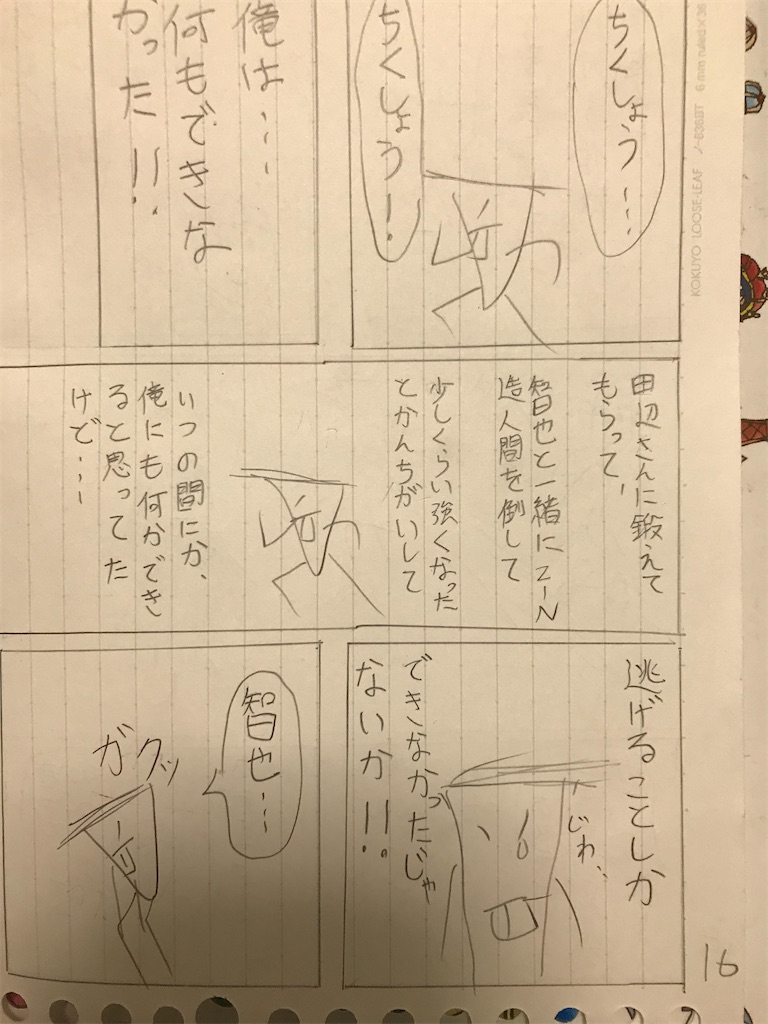 ちくしょう…
ちくしょう!
俺は…
何もできな
かった!!
田辺さんに鍛えて
もらって、
智也と一緒にZ-N
造人間を倒して
少しくらい強くなった
とかんちがいして
いつの間にか、
俺にも何かでき
ると思ってた
けど…
逃げることしか
じわ、
できなかったじゃ
ないか!!
智也…
ガクッ
16
KOKUYO LOOSE-LEAF ノ-836BT 6 mm ruled×36